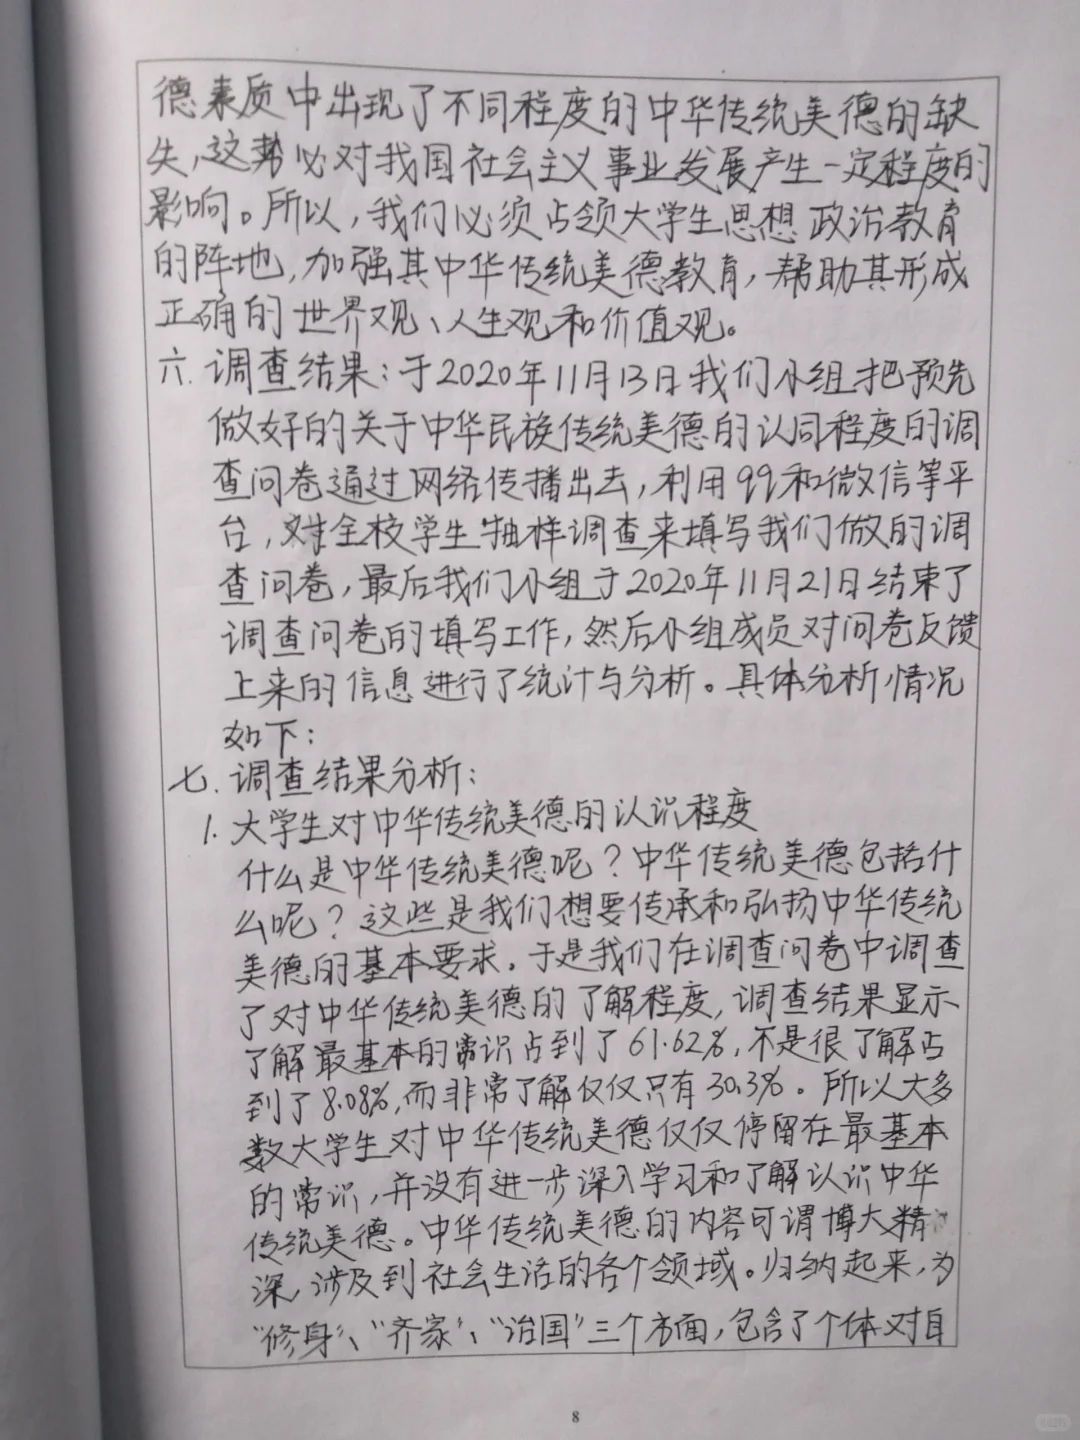 德素质中出现了不同程度的中华传统美德的缺
失，这势必对我国社会主义事业发展产生一定程度的
影响。所以，我们必须占领大学生思想政治教育
的阵地，加强其中华传统美德教育，帮助其形成
正确的世界观、人生观和价值观。
六.调查结果：于2020年11月13日我们小组把预先
做好的关于中华民族传统美德的认同程度的调
查问卷通过网络传播出去，利用QQ和微信等平
台，对全校学生抽样调查来填写我们做的调
查问卷，最后我们小组于2020年11月21日结束了
调查问卷的填写工作，然后小组成员对问卷反馈
上来的信息进行了统计与分析。具体分析情况
如下：
七.调查结果分析：
1.大学生对中华传统美德的认识程度
什么是中华传统美德呢？中华传统美德包括什
么呢？这些是我们想要传承和弘扬中华传统
美德的基本要求。于是我们在调查问卷中调查
了对中华传统美德的了解程度，调查结果显示
了解最基本的常识占到了61.62%，不是很了解占
到了8.08%，而非常了解仅仅只有30.3%。所以大多
数大学生对中华传统美德仅仅停留在最基本
的常识，并没有进一步深入学习和了解认识中华
传统美德。中华传统美德的内容可谓博大精
深，涉及到社会生活的各个领域。归纳起来，为
“修身”、“齐家”、“治国”三个方面，包含了个体对自
8